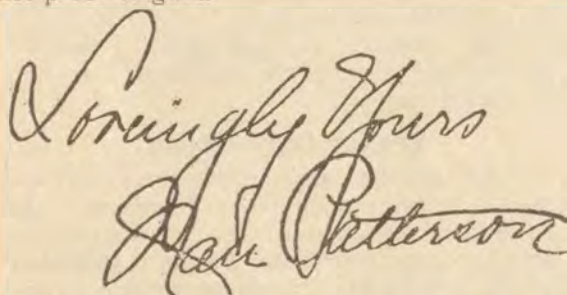 Lovingly Yours
Nan Patterson